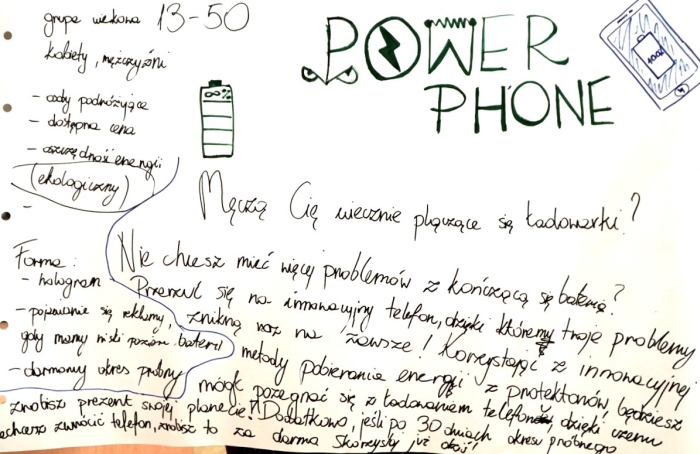 grupa wiekowa 13-50
kobiety, mężczyźni
- osoby podróżujące
- dostępna cena
- oszczędność energii
(ekologiczny)
-
Forma:
- hologram
- pojawianie się reklamy,
gdy mamy niski poziom baterii
- darmowy okres próbny
POWER
PHONE
100%
∞%
Męczą Cię wiecznie plączące się ładowarki?
Nie chcesz mieć więcej problemów z kończącą się baterią?
Przerzuć się na innowacyjny telefon, dzięki któremu twoje problemy
znikną raz na zawsze! Korzystając z innowacyjnej
metody pobierania energii z protektonów, będziesz
mógł pożegnać się z ładowaniem telefonów, dzięki czemu
zrobisz prezent swojej planecie! Dodatkowo, jeśli po 30 dniach okresu próbnego
zechcesz zwrócić telefon, zrobisz to za darmo. Skorzystaj już dziś!